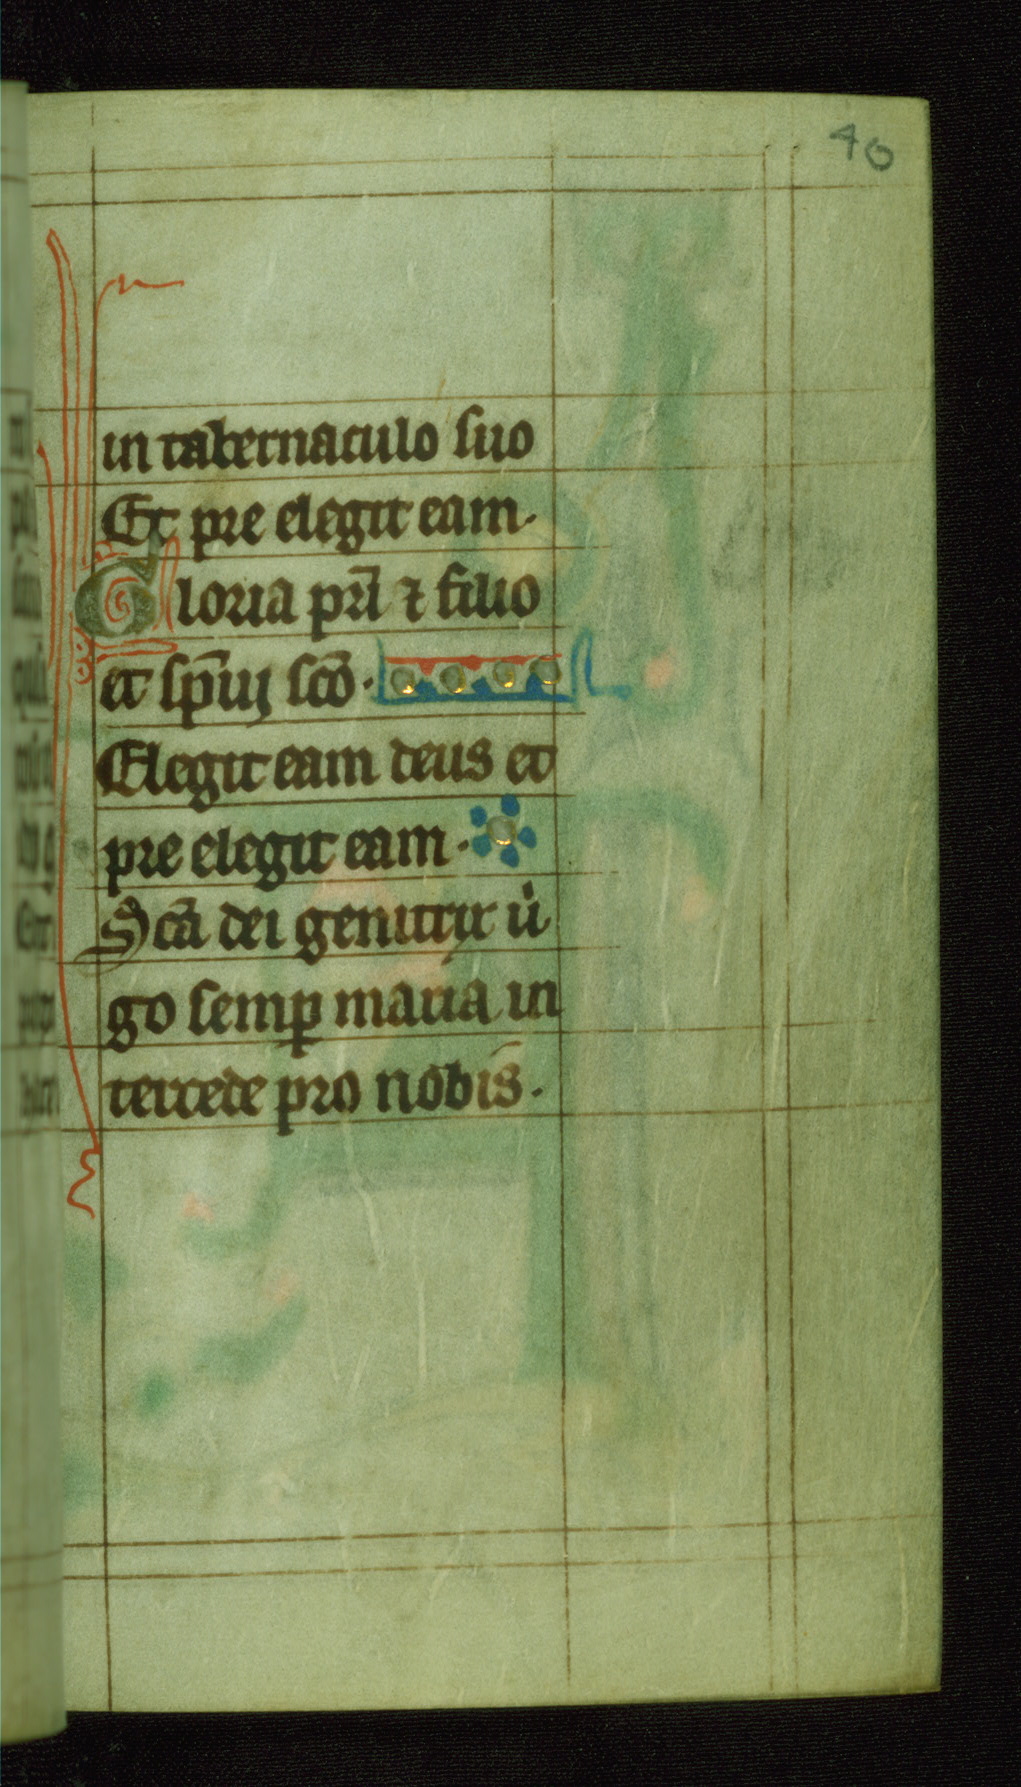 40
in tabernaculo suo
Et pre elegit eam·
Gloria pr̄i ⁊ filio
et sp̄ui sc̄o·
Elegit eam deus et
pre elegit eam·
Sc̄a dei genitrix ui
go semꝑ maria in
tercede pro nobis·